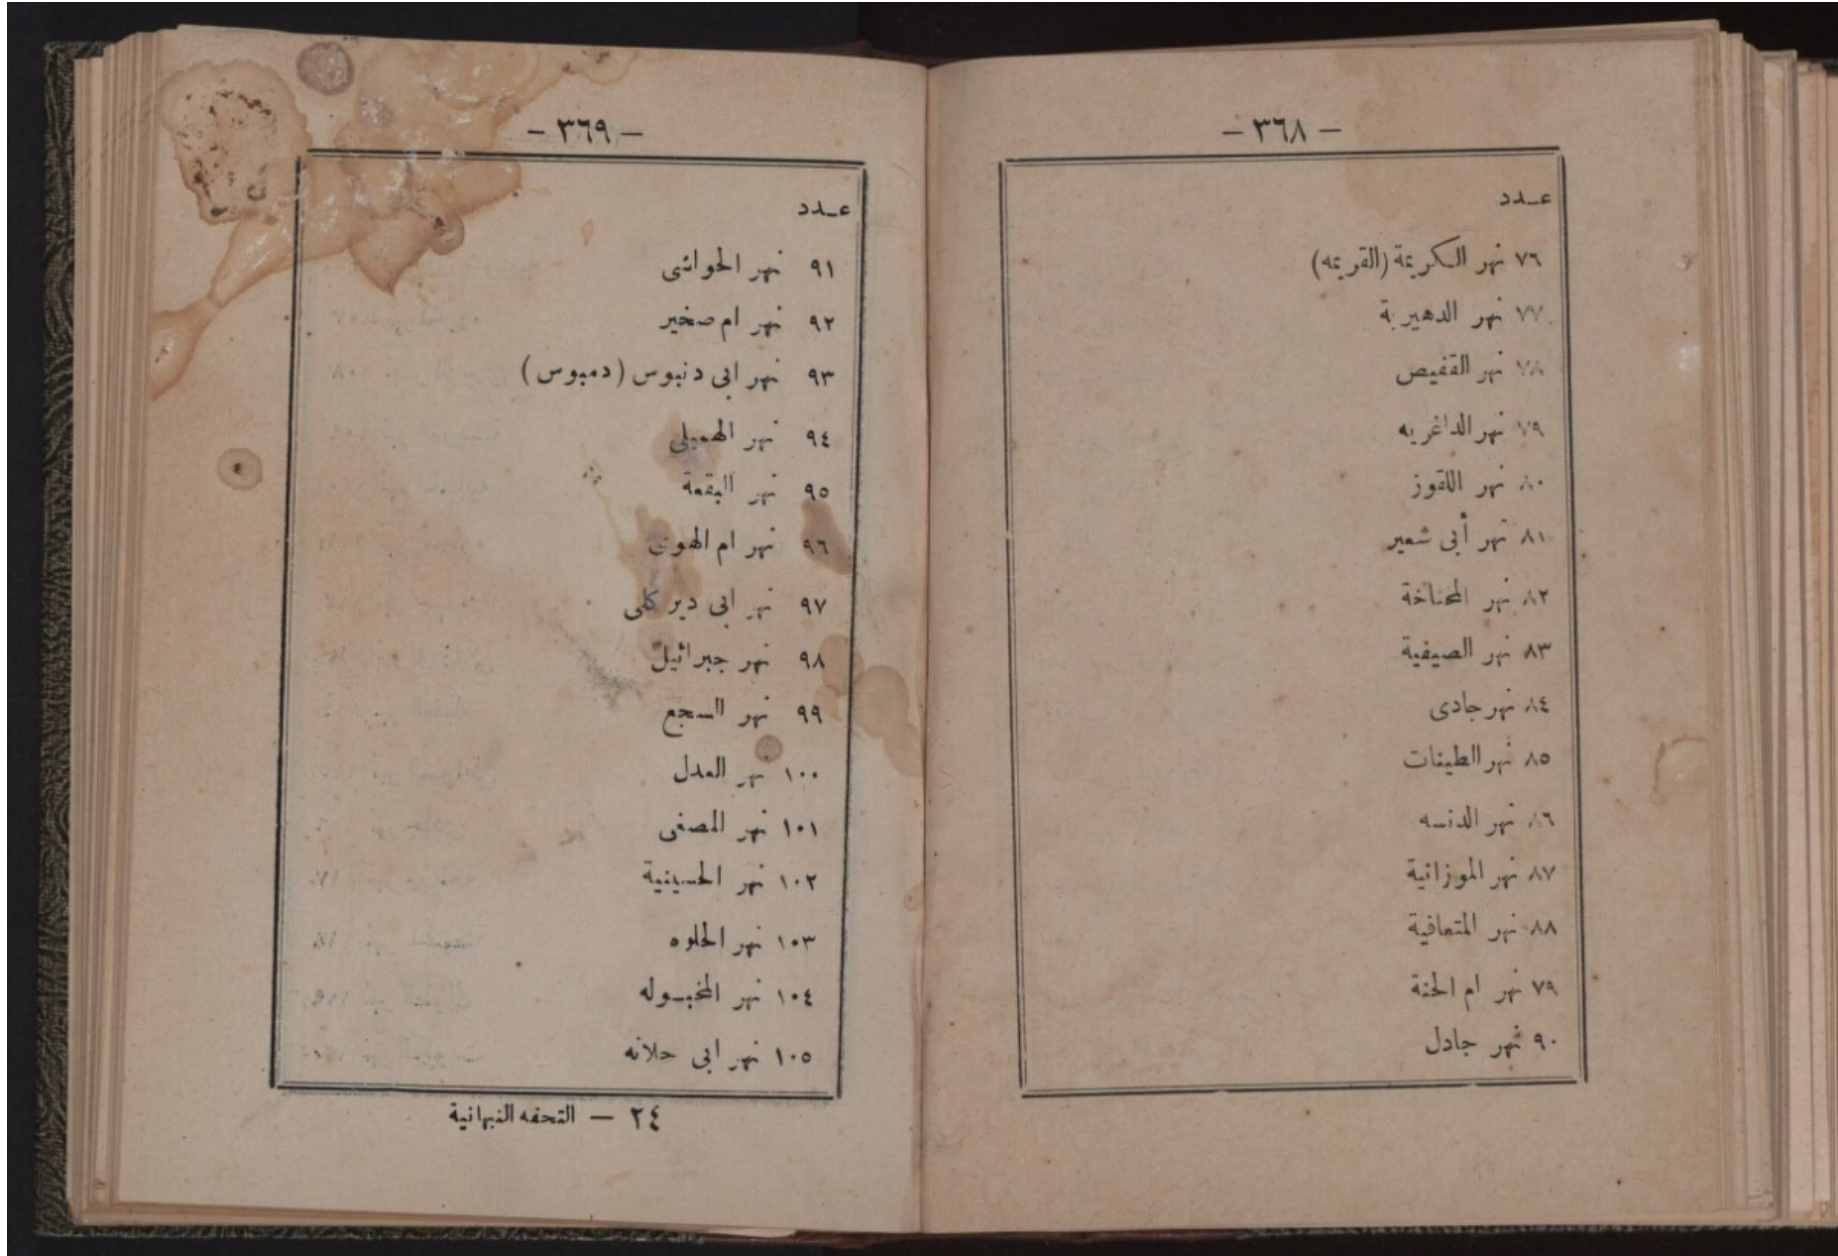 — ٣٦٨ —
عـدد
٧٦ نهر الكريمة (القريمه)
٧٧ نهر الدهيربة
٧٨ نهر القفيص
٧٩ نهر الداغريه
٨٠ نهر اللقوز
٨١ نهر أبى شعير
٨٢ نهر المحناخة
٨٣ نهر الصيفية
٨٤ نهر جادى
٨٥ نهر الطينات
٨٦ نهر الدنسه
٨٧ نهر الموزانية
٨٨ نهر المتعافية
٧٩ نهر ام الحنة
٩٠ نهر جادل
— ٣٦٩ —
عـدد
٩١ نهر الحواشى
٩٢ نهر ام صخير
٩٣ نهر ابى دنبوس (دمبوس)
٩٤ نهر الهميلى
٩٥ نهر البقعة
٩٦ نهر ام الهونى
٩٧ نهر ابى دير كلى
٩٨ نهر جبرائيل
٩٩ نهر السجع
١٠٠ نهر العدل
١٠١ نهر المصغى
١٠٢ نهر الحسينية
١٠٣ نهر الحلوه
١٠٤ نهر المخبـوله
١٠٥ نهر ابى حلانه
٢٤ — التحفه النبهانية